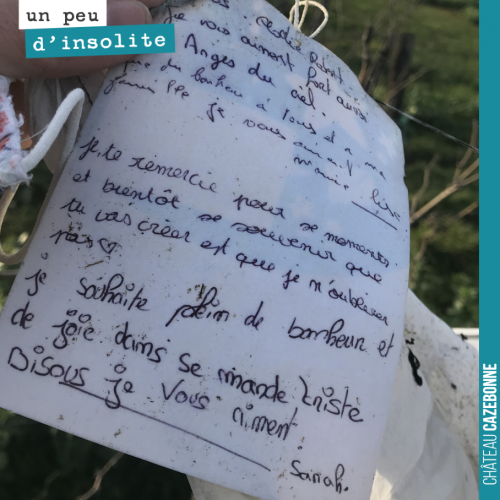 un peu
d'insolite
je vous aiment fort aussi
Anges du ciel.
du bonheur à tous et a ma
je vous
mamie
je te remercie pour se moments
et bientôt se souvenir que
tu vas créer et que je n'oublirer
pas ♡
je souhaite plein de bonheur et
de joie dans se monde triste
Bisous je vous aiment.
Sarah.
CHÂTEAU CAZEBONNE